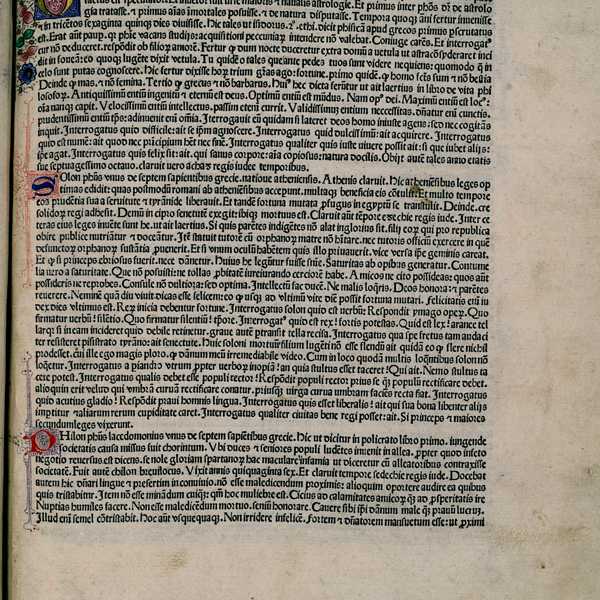 gia tractasse. et primus aīas īmortales posuisse. et de natura disputasse. Tempora quoqȝ āni fertur inuenisse
in tricētos sexaginta quinqȝ dies diuisisse. Hic tales ut isidorus. 2. ethi. dicit phisicē apud grecos primus pscrutatus
est. Erat autē paup. qȝ phīe vacans studijs: acquisitioni peccuniaȝ intendere nō valebat. Coniuge carēs. Et interrogatꝰ
cur nō deduceret. respōdit ob filioȝ amorē. Fertur qȝ dum nocte duceretur extra domū a vetula ut astra cōsyderaret inci
dit in foueā: eo quoqȝ lugēte dixit vetula. Tu quidē o tales que ante pedes tuos sunt videre nequiens: quomodo q̄ in
celo sunt putas cognoscere. Hic fertur dixisse hoȝ trium grās ago: fortune. primo quidē. qȝ homo sc̄us sum et nō belua
Deinde qȝ mas. et nō femina. Tertio qȝ grecus et nō barbarus. Huiꝰ hec dicta serūtur ut ait laertius in libro de vita phi
losofoȝ. Antiquissimū entiū ingenitū et eternū est deus. Optimū entiū est mūdus. Nam opꝰ dei. Maximū entiū est locꝰ:
oīa nāqȝ capit. Velocissimū entiū intellectus. passim etenī currit. Validissimūȝ entium necessitas. dn̄atur enī cunctis.
prudentissimū entiū tp̄s: adinuenit enī oīnia. Iterrogauit eū quidam si lateret deos homo iniuste agens: sed nec cogitās
inquit. Interrogatus quid difficile: ait se ip̄m agnoscere. Interrogatus quid dulcissimū: ait acquirere. Interrogatus
quid est numē: ait quod nec pricipium hēt nec finē. Interrogatus qualiter quis iuste viuere possit ait: si que iubet alijs:
ipe agat. Interrogatus quis felix sit: ait. qui sanus corpore: aīa copiosus: natura docilis. Obijt autē tales anno etatis
sue septuagesimo octauo. claruit uero achaz regis iudee temporibus.
Solon phūs vnus de septem sapientibus grecie. natione atheniensis. Athenis claruit. Hic atheniēsibus leges op
timas edidit: quas postmodū romani ab atheniēsibus accepunt. multaqȝ beneficia eis cōtulit. Et multo tempore
eos prudētia sua a seruitute et tyrānide liberauit. Et tandē fortuna mutata pfugus in egyptū se transtulit. Deinde. cre
solidorȝ regi adhesit. Demū in cipro senectutē exegit: ibiqȝ mortuus est. Claruit aūt tēpore ezechie regis iude. Inter ce
teras eius leges inuēte sunt he. ut ait laertius. Si quis parētes indigētes nō alat inglorius sit. filij eorȝ qui pro republica
obiere publice nutriātur et doceantur. Itē statuit tutorē cū orphanorȝ matre nō hītare. nec tutoris officiū exercere in quē
defunctorȝ orphanorȝ sustātia puenerit. Et si vnum oculū habētem quis illo priuauerit. vice versa ipe geminis careat.
Et qȝ si princeps ebriosus fuerit. nece dānetur. Huius he legūtur fuisse snīe. Saturitas ab opibus generatur. Contume
lia uero a saturitate. Que nō posuisti: ne tollas. pbitatē iureiurando cerciorē habe. Amicos ne cito possideas: quos autē
possideris ne reprobes. Consule nō dulciora: sed optima. Intellectū fac ducē. Ne malis loqris. Deos honora: et parētes
reuerere. Neminē quā diu viuit dicas esse felicem: eo qȝ usqȝ ad vltimū vite diē possit fortuna mutari. Felicitatis enī iu
dex dies vltimus est. Rex inicia debentur fortune. Interrogatus solon quid est verbū: Respondit ymago operȝ. Quo
firmatur verbū: silētio. Quo firmatur silentiū: tpore. Interrogatꝰ quid est rex: fortis potestas. Quid est lex: aranee tel
larȝ: si in eam incideret quid debile retinetur. graue autē ptransit tella recisa. Interrogatus qua spe fretus tam audaci
ter resisteret pisistrato tyrāno: ait senectute. Huic soloni mortuū filium lugēti nō esse flendū ait quidā eo qȝ flere nichil
prodesset. cui ille ego magis ploro. qȝ dānum meū irremediabile video. Cum in loco quodā multis loqntibus solon nō
loqretur. Interrogatus a piandro vtrum ppter verborȝ inopiā: an quia stultus esset taceret: Qui ait. Nemo stultus ta
cere potest. Interrogatus qualis debet esse populi rector: Respondit populi rector prius se qȝ populū rectificare debet.
alioquin erit velud qui vmbrā curuā rectificare conatur. priusqȝ virga curua vmbram faciēs recta fiat. Interrogatus
quid acutius gladio: Respōdit praui hominis lingua. Interrogatus quis esset liberalis: ait qui sua bona libenter alijs
imptitur et aliarum rerum cupiditate caret. Interrogatus qualiter ciuitas bene regi posset: ait. Si princeps et maiores
secundum leges vixerunt.
Philon phūs lacedomonius vnus de septem sapiētibus grecie. Hic ut dicitur in policrato libro primo. iungende
societatis causa missus fuit chorintum. Vbi duces et seniores populi ludētes inuenit in alea. ppter quod infecto
negotio reuersus est dicens. se nole gloriam spartanorȝ hac maculare infamia ut diceretur cū alleatoribus contraxisse
societatē. Fuit autē chilon breuilocus. Vixit annis quinquaginta sex. Et claruit tempore sedechie regis iude. Docebat
autem hic dnāri lingue et presertim in conuiuio. nō esse maledicendum proximis: alioquin oportere audire ea quibus
quis tristabitur. Item nō esse minandum cuiqȝ: qm hoc muliebre est. Cicius ad calamitates amicorȝ qȝ ad prosperitates ire
Nuptias humiles facere. Non esse maledicēdum mortuo. seniū honorare. Cauere sibi ipi dānum male qȝ prauū lucrȝ.
Illud enī semel cōtristabit. Hoc aūt vsquequaqȝ. Non irridere infelicē. Fortem et dnatorem mansuetum esse: ut pximi